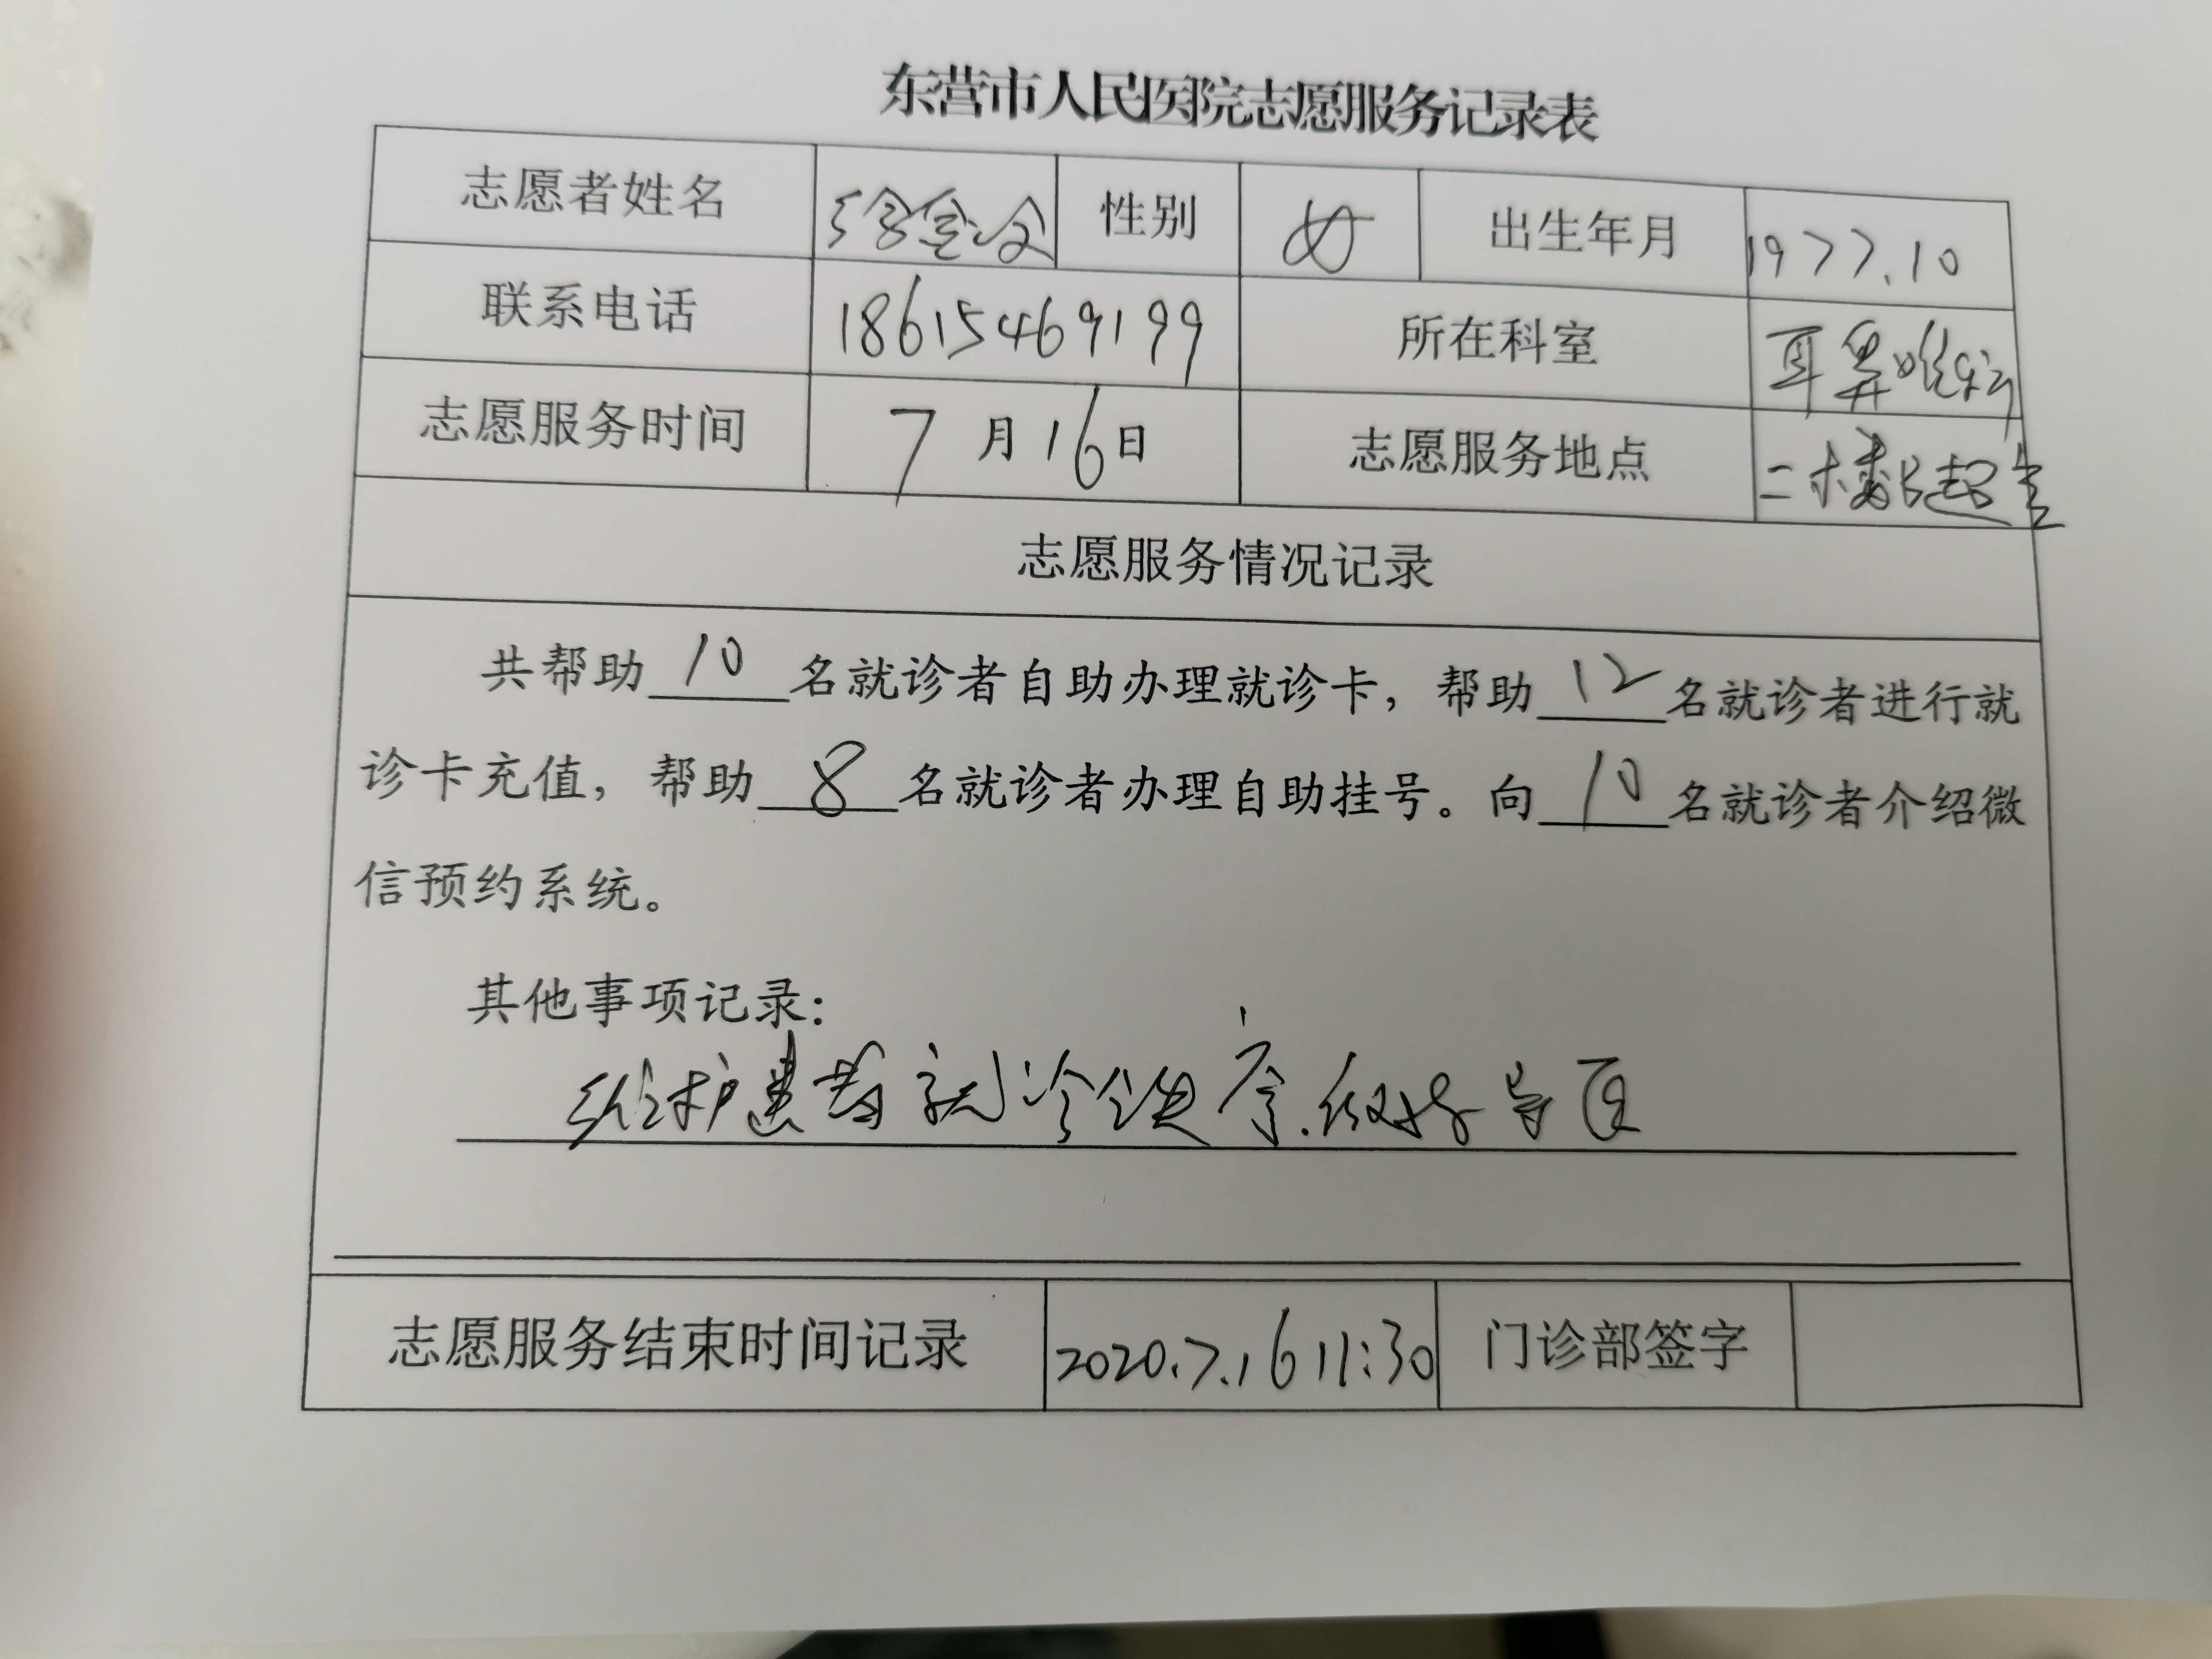 东营市人民医院志愿服务记录表
志愿者姓名 性别 女 出生年月 1977.10
联系电话 18615469199 所在科室 耳鼻喉科
志愿服务时间 7月16日 志愿服务地点 二楼B超室
志愿服务情况记录
共帮助10名就诊者自助办理就诊卡，帮助12名就诊者进行就
诊卡充值，帮助8名就诊者办理自助挂号。向10名就诊者介绍微
信预约系统。
其他事项记录：
维护患者就诊秩序.做好导医
志愿服务结束时间记录 2020.7.16 11:30 门诊部签字